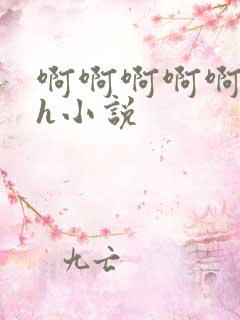 啊啊啊啊啊
h小説
九亡